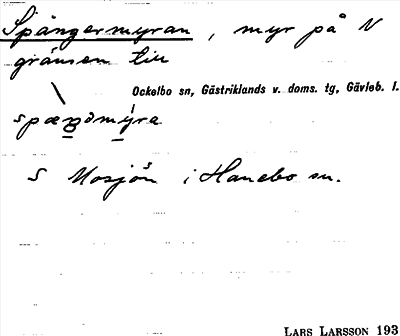 Spångermyran, myr på N
gränsen till
Ockelbo sn, Gästriklands v. doms. tg, Gävleb. l.
S Mosjön i Hanebo sn.
LARS LARSSON 193